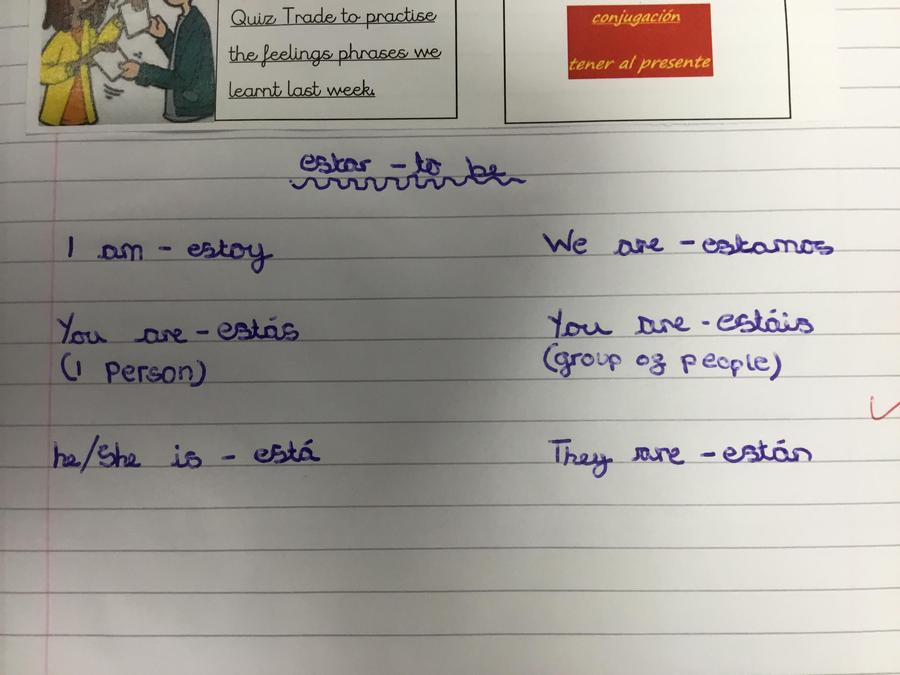 Quiz Trade to practise
the feelings phrases we
learnt last week.
conjugación
tener al presente
estar - to be
I am - estoy
We are - estamos
You are - estás
(1 person)
You are - estáis
(group of people)
he/she is - está
They are - están